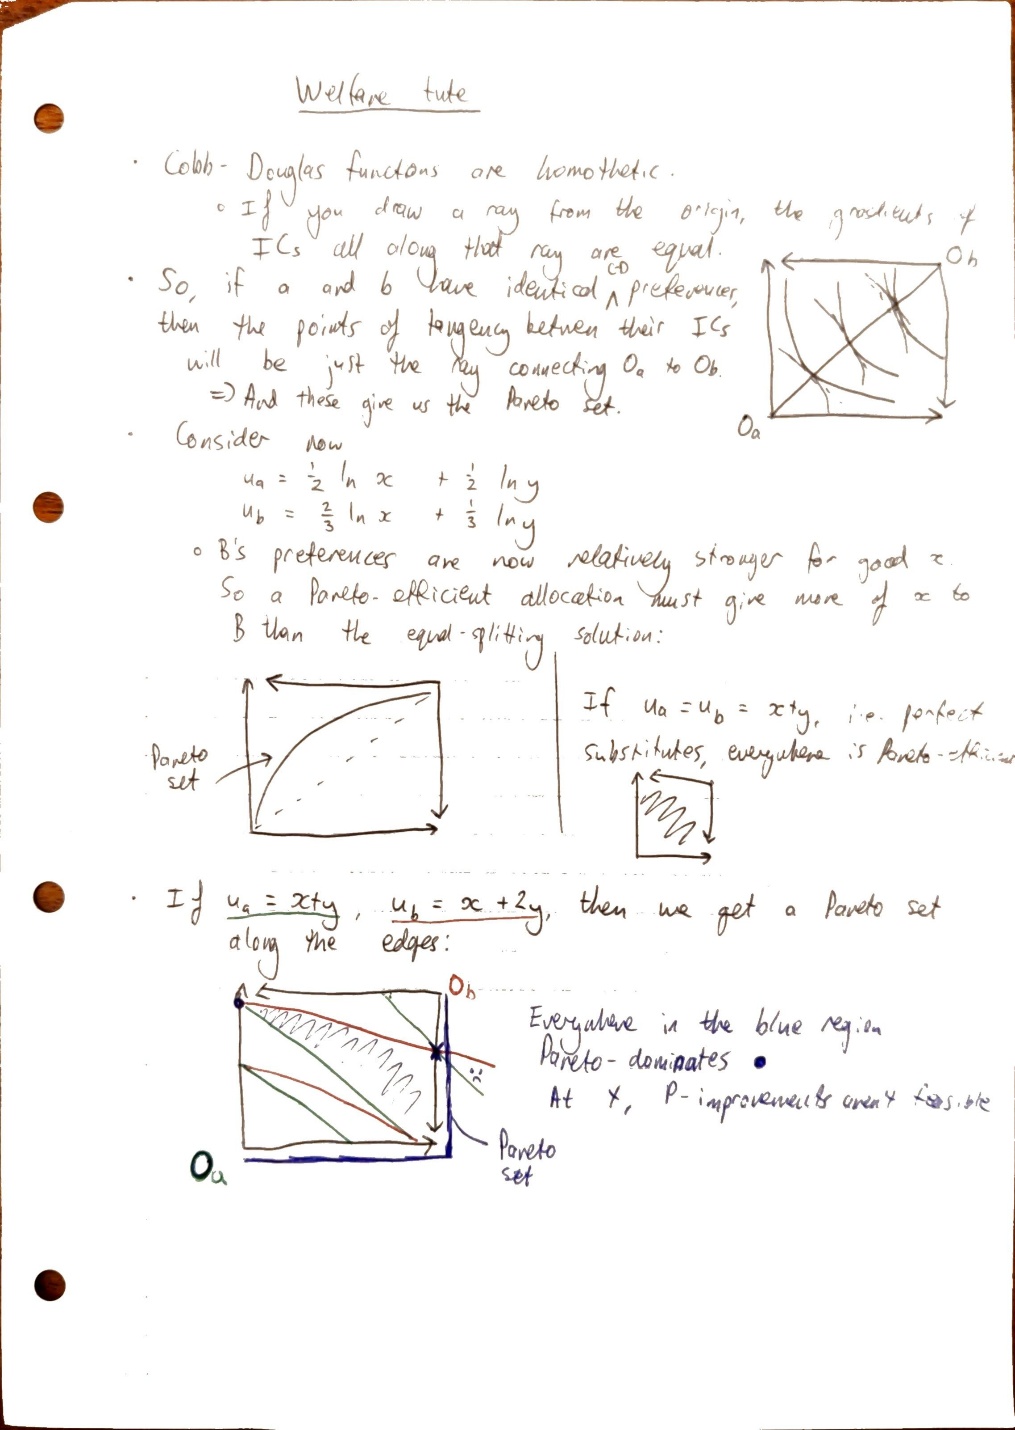 Welfare tute
· Cobb-Douglas functons are homothetic.
∘ If you draw a ray from the origin, the gradients of
ICs all along that ray are equal.
· So, if a and b have identical ^ CD preferences,
then the points of tangency between their ICs
will be just the ray connecting Oa to Ob.
=) And these give us the Pareto set.
Ob
Oa
· Consider now
ua = 1/2 ln x + 1/2 ln y
ub = 2/3 ln x + 1/3 ln y
∘ B's preferences are now relatively stronger for good x.
So a Pareto-efficient allocation must give more of x to
B than the equal-splitting solution:
Pareto
set
If ua = ub = x+y, i.e. perfect
substitutes, everywhere is Pareto-efficient
· If ua = x+y, ub = x + 2y, then we get a Pareto set
along the edges:
Ob
Oa
Everywhere in the blue region
Pareto-dominates •
At X, P-improvements aren't feasible
Pareto
set